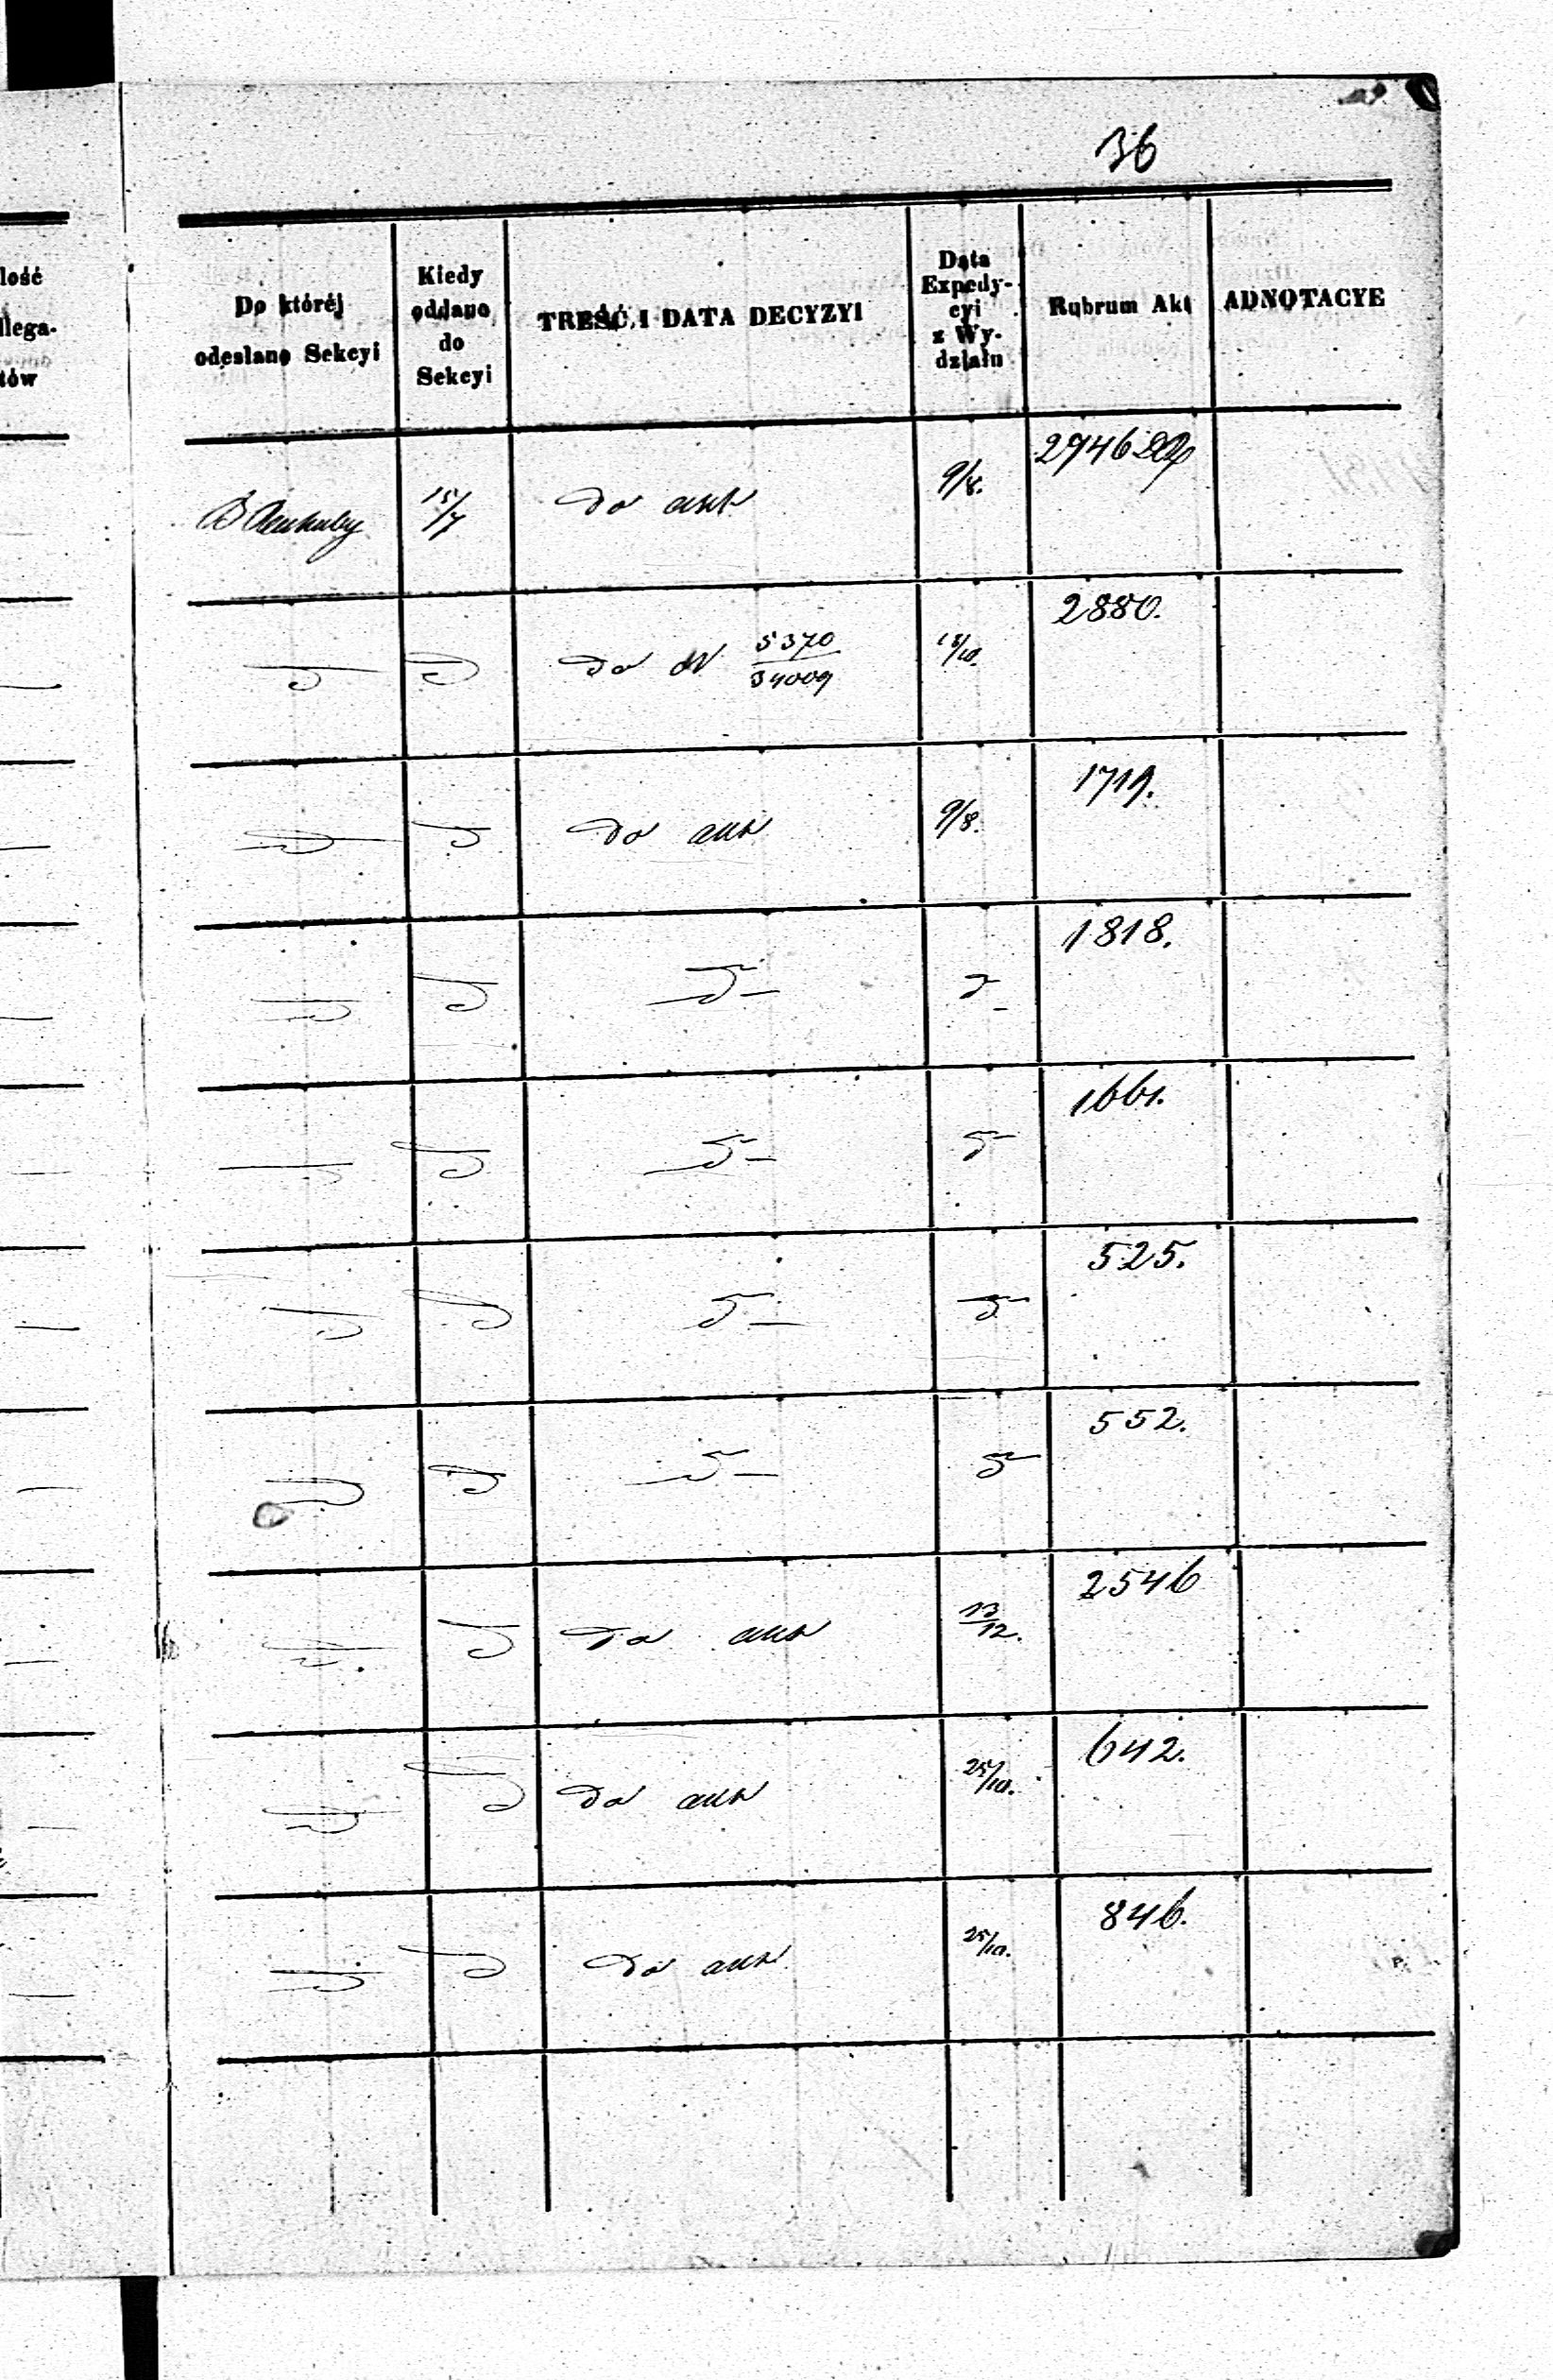 36
lość
llega-
tów
Do któréj
odesłano Sekcyi
Kiedy
oddano
do
Sekcyi
TREŚĆ I DATA DECYZYI
Data
Expedy-
cyi
z Wy-
działu
Rubrum Akt
ADNOTACYE
15/7 Do akt 9/8. 2946
Do N 5370/34009 18/10. 2880.
Do akt 9/8. 1719.
1818.
1661.
525.
552.
Do akt 13/12. 2546
Do akt 25/10. 642.
Do akt 25/10. 846.